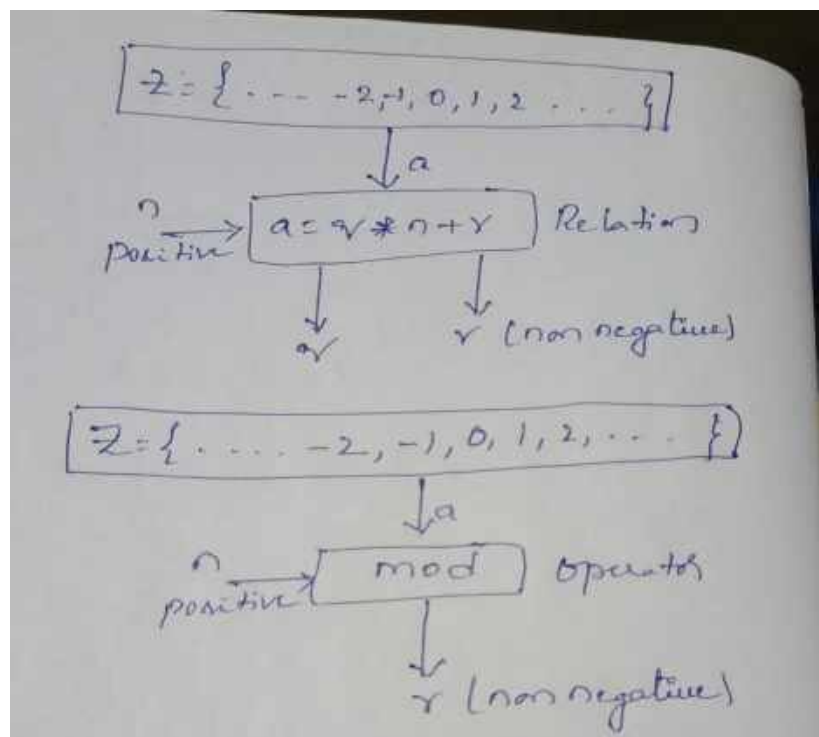 Z = { .... -2, -1, 0, 1, 2 .... }
a
n
positive
a = q * n + r
Relation
q
r (non negative)
Z = { ..... -2, -1, 0, 1, 2, .... }
a
n
positive
mod
operator
r (non negative)